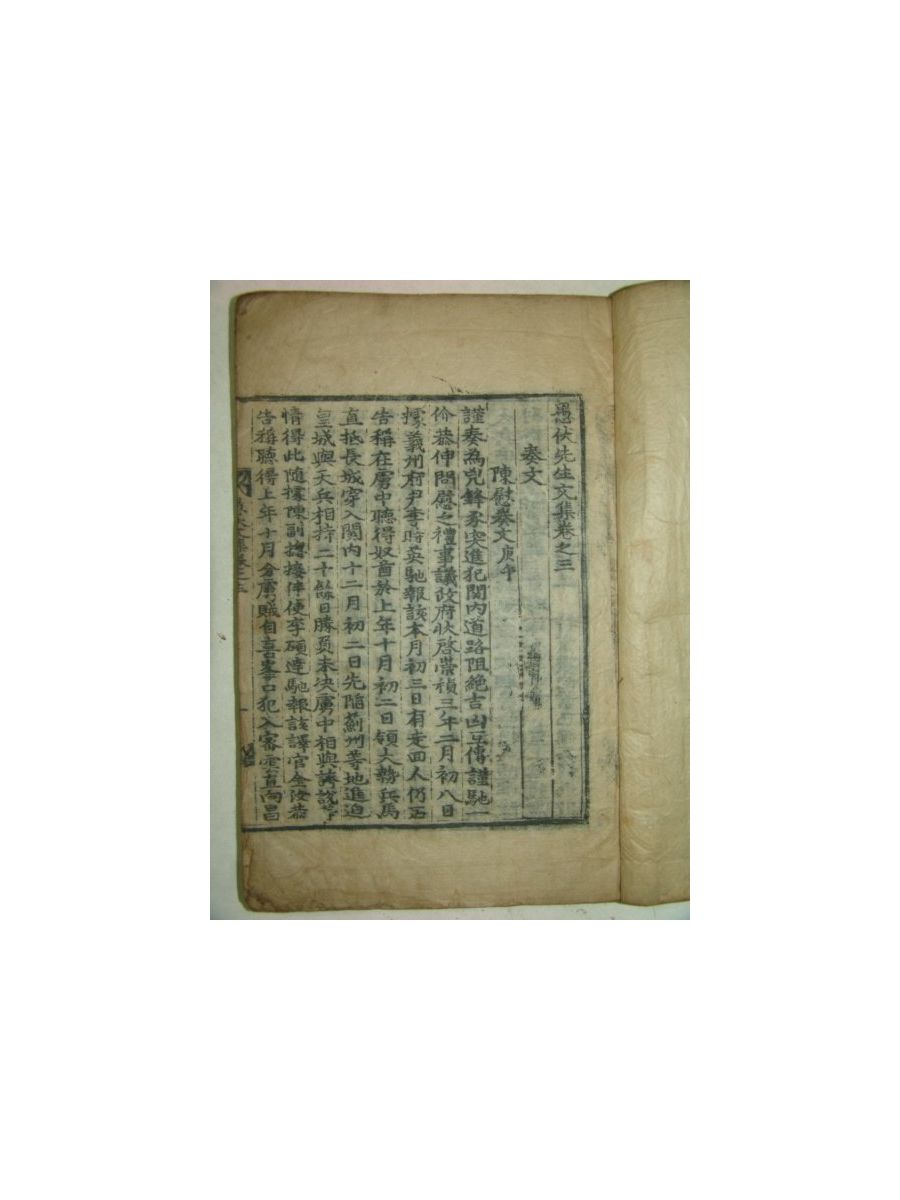 愚伏先生文集卷之三
奏文
陳慰奏文庚午
謹奏為兇鋒豕突進犯關內道路阻絶吉凶互傳謹馳一
价恭伸問慰之禮事議政府狀啓崇禎三年二月初八日
據義州府尹李時英馳報該本月初三日有走回人仍
告稱在虜中聽得奴酋於上年十月初二日領大勢兵馬
直抵長城穿入關內十二月初二日先陷薊州等地進迫
皇城與天兵相持二十餘日勝負未決虜中相與講說等
情得此隨據陳副揔接伴使李碩達馳報該譯官金汝恭
告稱聽得上年十月分虜賊自喜峯口犯入審 直向昌